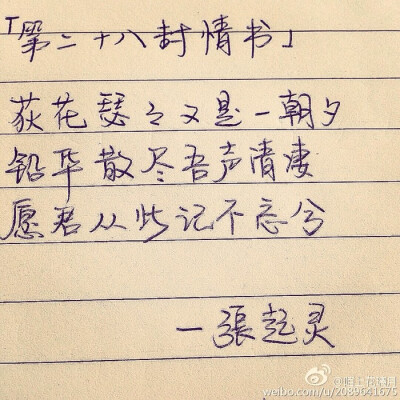 「第二十八封情书」
荻花瑟々又是一朝夕
铅华散尽吾声清凄
愿君从此记不忘兮
一張起灵
weibo.com/u/2089641675